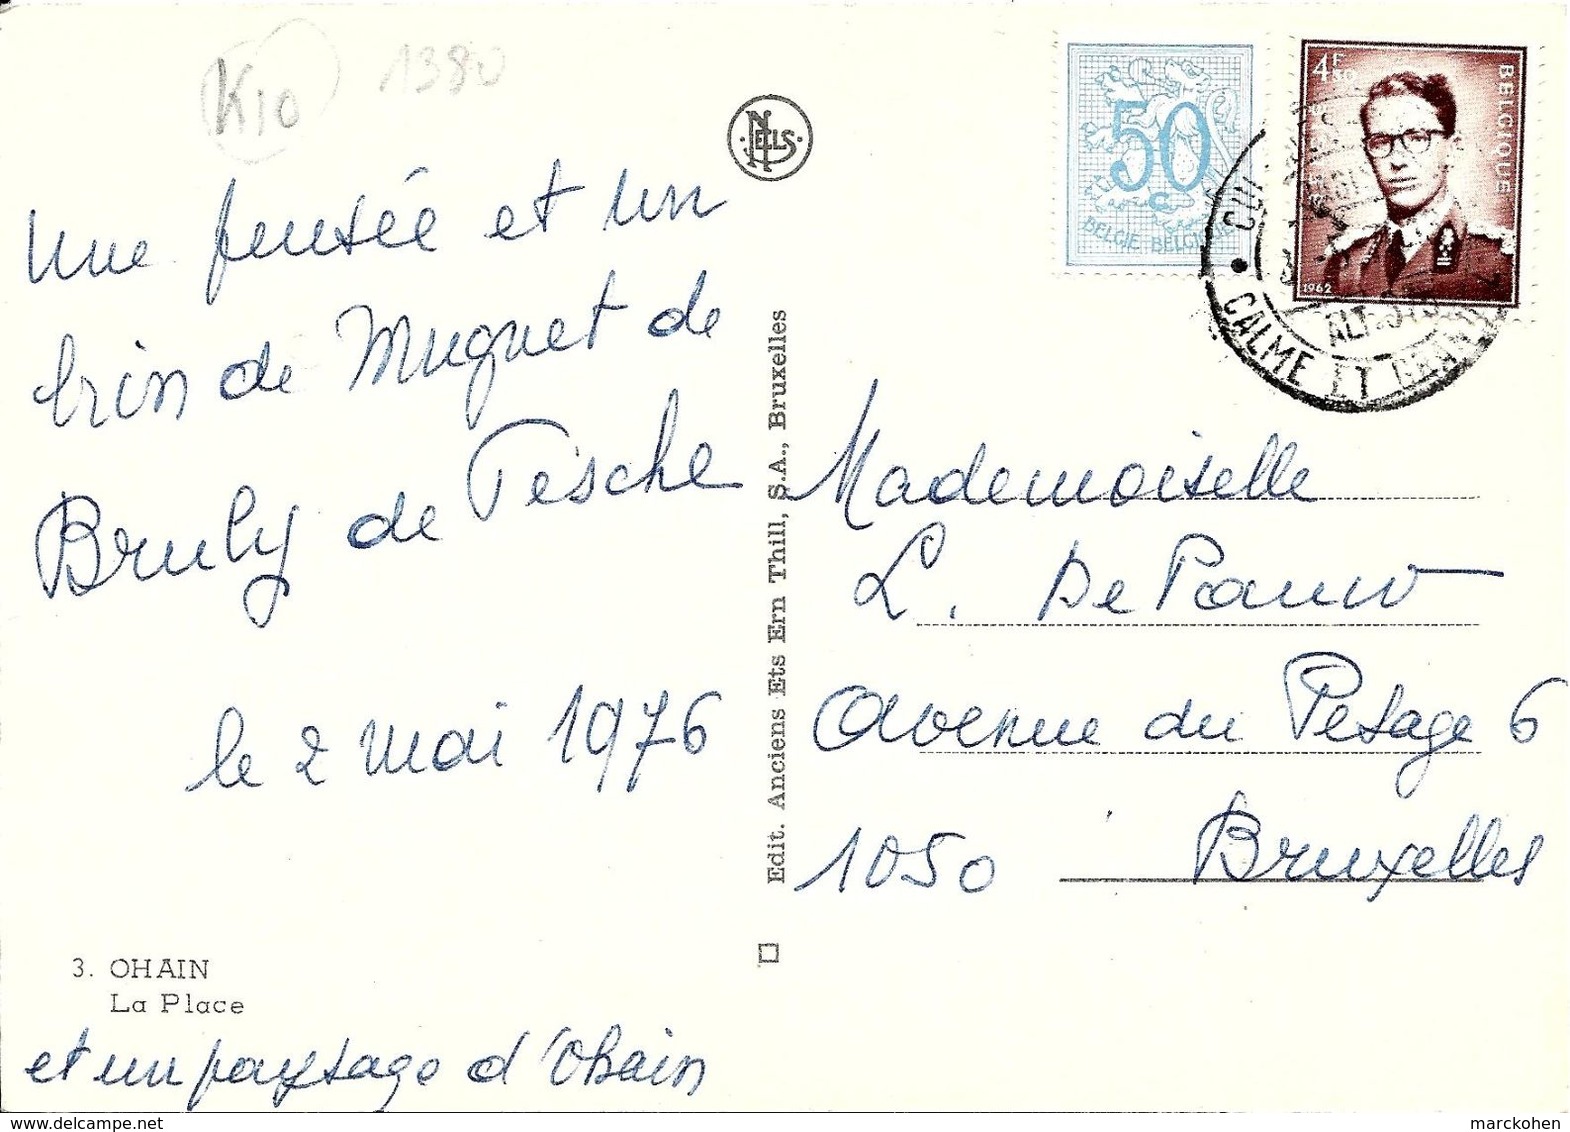 K10
1380
Une pensée et un
brin de Muguet de
Bruly de Pesche
le 2 mai 1976
3. OHAIN
La Place
et un paysage d'Ohain
NELLS
Edit. Anciens Ets Ern Thill, S.A., Bruxelles
50
c
BELGIE BELGIQUE
4F50
BELGIQUE
1962
CALME ET
Mademoiselle
L. De Pauw
Avenue du Pesage 6
1050 Bruxelles
www.delcampe.net
marckohen